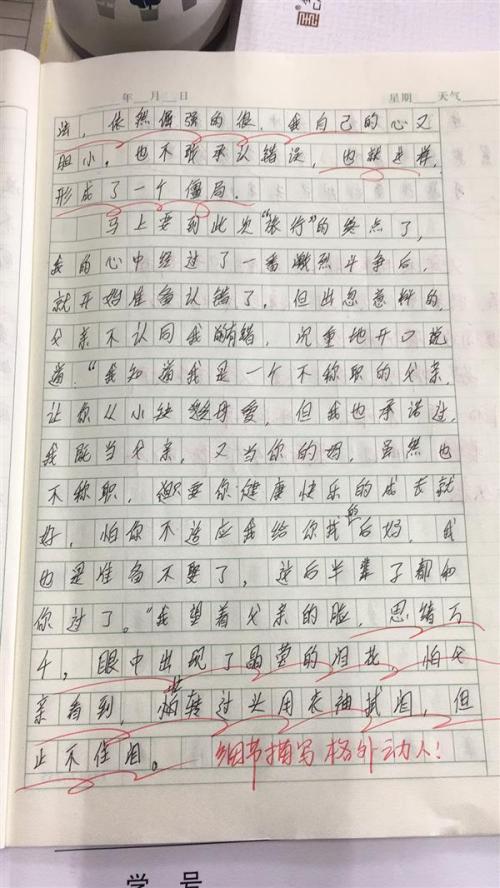 年 月 日 星期 天气
法，依然倔强的很，我自己的心又
胆小，也不敢承认错误，也就这样，
形成了一个僵局。
马上要到此次“旅行”的终点了，
我的心中经过了一番激烈斗争后，
就开始准备认错了，但出忽意料的，
父亲不认同我有错，沉重地开口说
道：“我知道我是一个不称职的父亲，
让你从小缺母爱，但我也承诺过，
我既当父亲，又当你的妈，虽然也
不称职，但只要你健康快乐的成长就
好，怕你不适应我给你找的后妈，我
也是准备不娶了，这后半辈子都和
你过了。“我望着父亲的脸，思绪万
千，眼中出现了晶莹的泪花，怕父
亲看到，忙转过头用衣袖拭泪，但
止不住泪。 细节描写格外动人！
学号